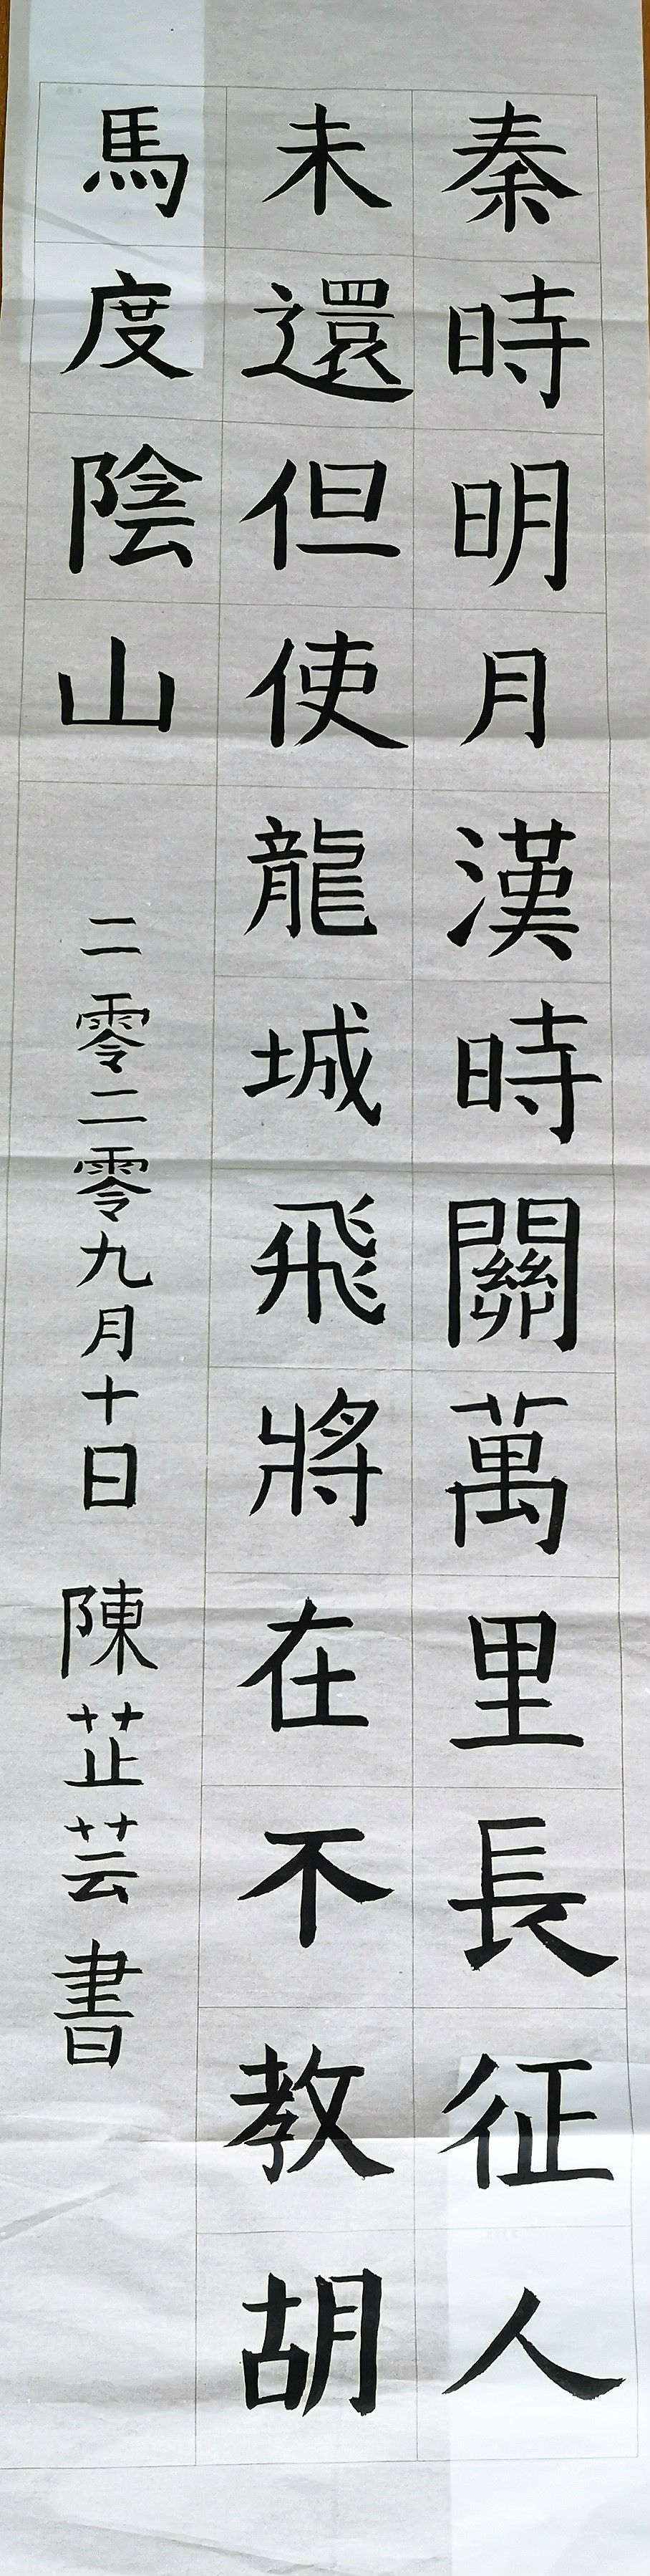 秦時明月漢時關萬里長征人
未還但使龍城飛將在不教胡
馬度陰山 二零二零九月十日 陳芷芸書